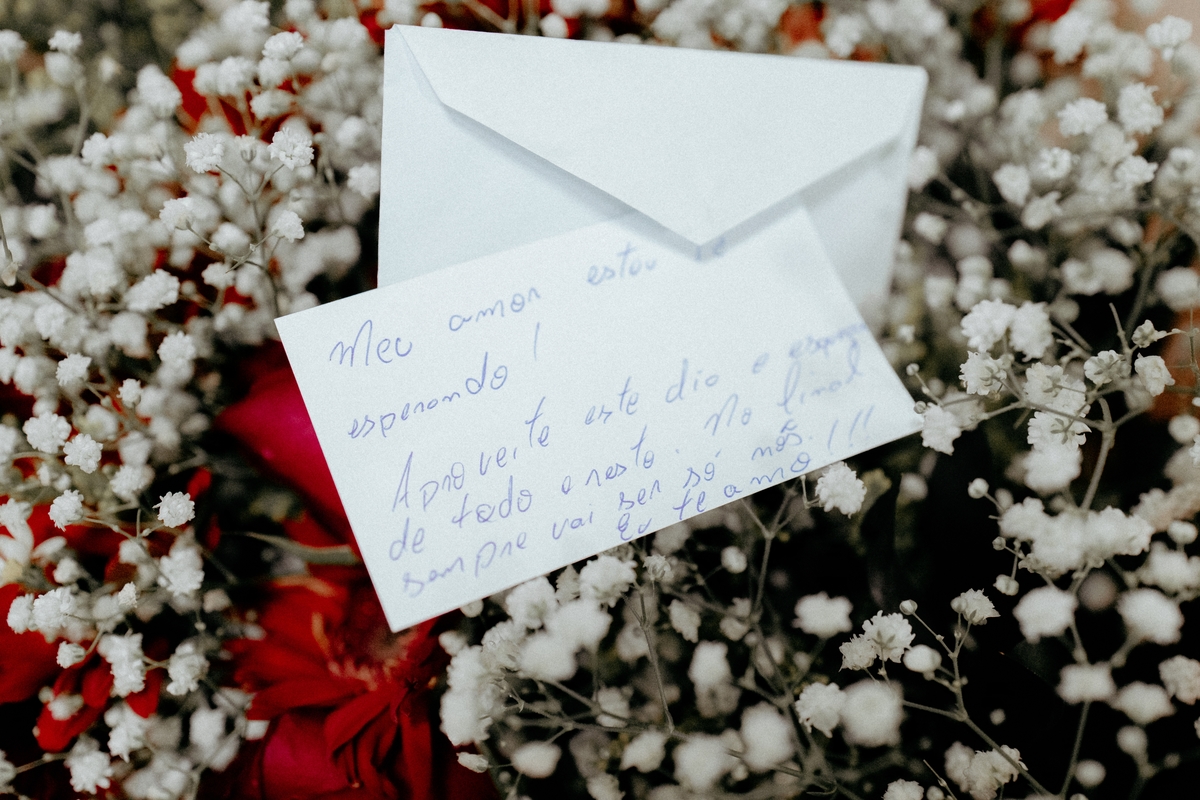 Meu amor estou te
esperando!
Aproveite este dia e esqueça
de todo o resto. No final
sempre vai ser só nós.!!!
Eu te amo!